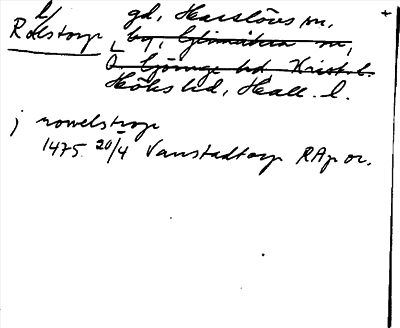 Rolstorp gd, Hasslövs sn,
by, Glimåkra sn,
Ö. Göinge hd Krist. l.
Höks hd, Hall. l.
j rowelstrop
1475 20/4 Vanstadtorp RAp or.